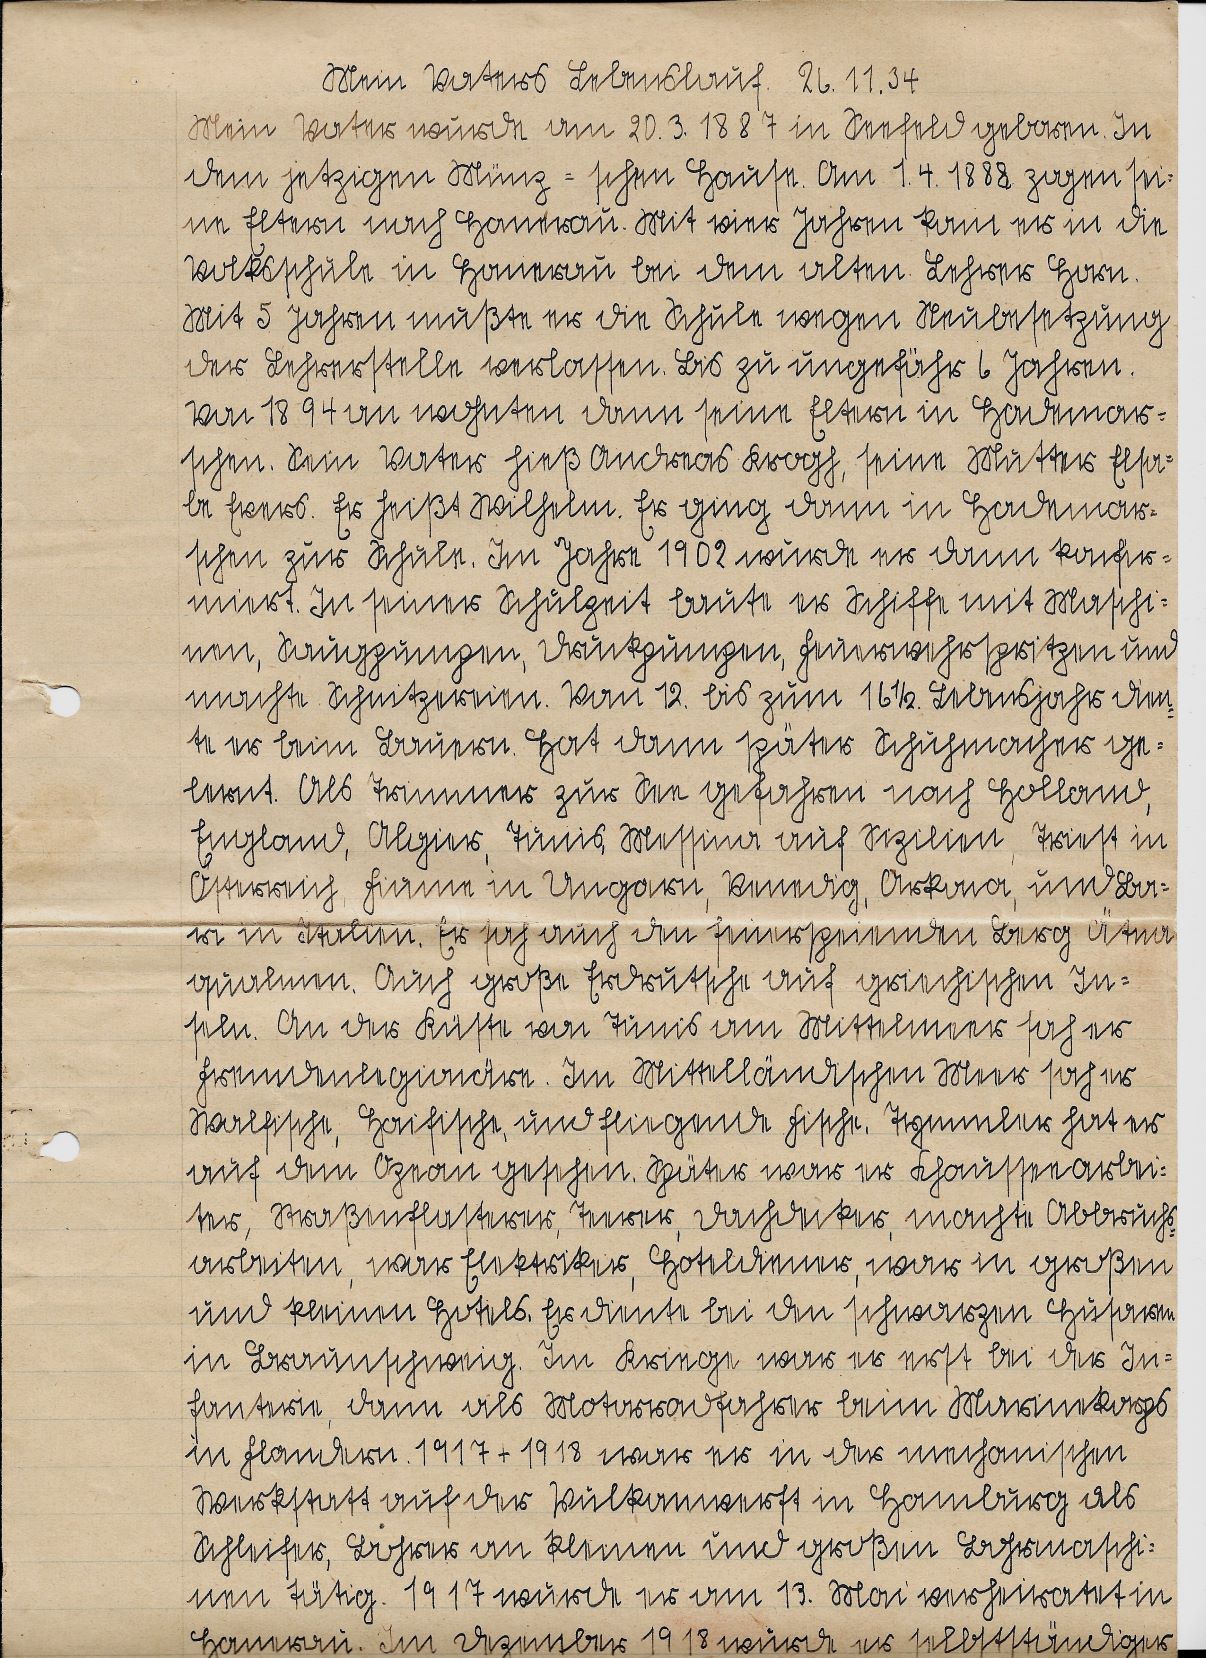 Mein Vaters Lebenslauf. 26.11.34
Mein Vater wurde am 20.3.1887 in Seefeld geboren. In
dem jetzigen Münz=schen Hause. Am 1.4.1888 zogen sei=
ne Eltern nach Hanerau. Mit vier Jahren kam er in die
Volksschule in Hanerau bei dem alten Lehrer Horn.
Mit 5 Jahren mußte er die Schule wegen Neubesetzung
der Lehrerstelle verlassen. Bis zu ungefähr 6 Jahren.
Von 1894 an wohnten dann seine Eltern in Hademar=
schen. Sein Vater hieß Andreas Krogh, seine Mutter Elsa=
be Evers. Er heißt Wilhelm. Er ging dann in Hademar=
schen zur Schule. Im Jahre 1902 wurde er dann konfir=
miert. In seiner Schulzeit baute er Schiffe mit Maschi=
nen, Saugpumpen, Drukpumpen, Feuerwehrspritzen und
machte Schnitzereien. Von 12. bis zum 16½. Lebensjahr dien=
te er beim Bauern. Hat dann später Schuhmacher ge=
lernt. Als Trimmer zur See gefahren nach Holland,
England, Algier, Tunis, Messina auf Sizilien, Triest in
Österreich, Fiume in Ungarn, Venedig, Arkona, und Ba=
ri in Italien. Er sah auch den feuerspeienden Berg Ätna
qualmen. Auch große Erdrutsche auf griechischen In=
seln. An der Küste von Tunis am Mittelmeer sah er
Fremdenlegionäre. Im Mittelländischen Meer sah er
Walfische, Haifische, und fliegende Fische. Tümmler hat er
auf dem Ozean gesehen. Später war er Chausseearbei=
ter, Straßenflasterer, Teerer, Dachdecker, machte Abbruchs=
arbeiten, war Elektriker, Hoteldiener, war in großen
und kleinen Hotels. Er diente bei den schwarzen Husaren
in Braunschweig. Im Kriege war er erst bei der In=
fanterie, dann als Motorradfahrer beim Marinekorps
in Flandern. 1917 + 1918 war er in der mechanischen
Werkstatt auf der Vulkanwerft in Hamburg als
Schleifer, Bohrer an kleinen und großen Bohrmaschi=
nen tätig. 1917 wurde er am 13. Mai verheiratet in
Hanerau. Im Dezember 1918 wurde er selbstständiger